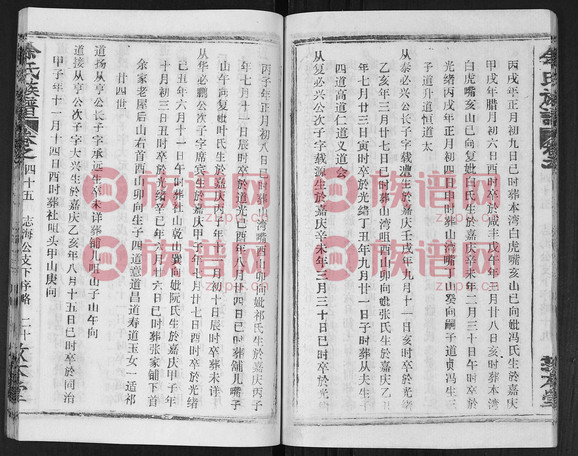 余氏族譜
丙戌年正月初九日巳時葬本湾白虎嘴亥山巳向妣冯氏生於嘉庆
甲戌年腊月初六日酉時卒於咸丰戊午年三月廿八日亥時葬本湾
白虎嘴亥山巳向复妣白氏生於嘉庆辛未年二月廿一日辰時卒於
光绪丙戌年正月初四日申時葬山湾嘴丁山癸向嗣子道贞冯生三
子道升道恒道太
从泰必兴公长子字载澧生於嘉庆壬戌年九月十一日亥時卒於
乙亥年三月廿七日巳時葬山湾咀酉山卯向妣张氏生於嘉庆乙丑
年七月廿三日寅時卒於光绪丁丑年九月廿一日時葬从夫生子
四道高道仁道义道会
从复必兴公次子字载源生於嘉庆辛未年三月三十日巳時卒於
丙子年正月初八日巳時葬山湾嘴酉山卯向妣祁氏生於嘉庆丙子
年七月十一日辰時卒於道光己酉年八月廿四日巳時葬铺儿嘴子
山午向复妣叶氏生於嘉庆丙子年十二月初十日辰時卒葬未详
从华必鹏公次子字席宾生於嘉庆甲子年九月十七日酉時卒於光绪
己丑年六月十一日午時葬杜山乾山巽向妣阮氏生於嘉庆甲子年
十月初三日丑時卒於光绪己丑年六月廿六日巳時葬张家铺下首
余家老屋后山右首酉山卯向生子四道意道昌道寿道玉女一适祁
廿四世
道扬从亨公长子字承远生卒未详葬铺儿咀子山午向
道接从亨公次子字大兴生於嘉庆乙亥年八月十五日巳時卒於同治
甲子年十一月十四日酉時葬社咀头甲山庚向
余氏族譜 卷之 四十五 志海公支下序略 二十